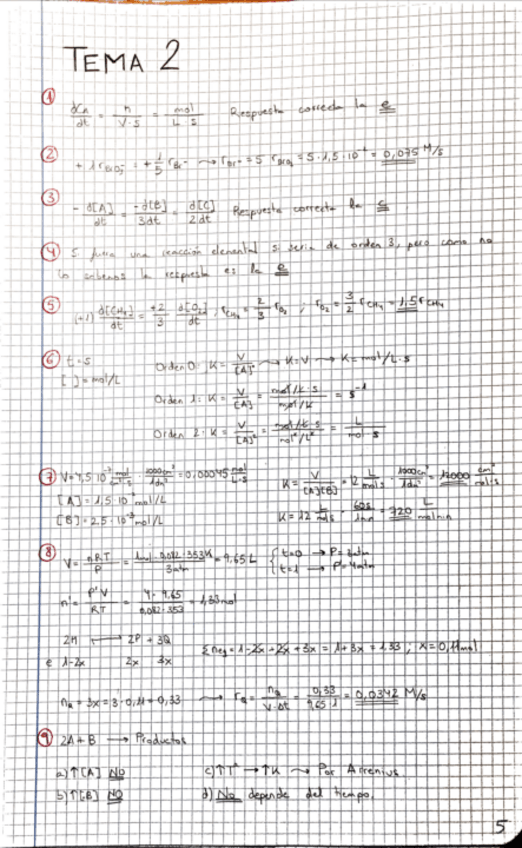 TEMA 2
① dCn/dt = n/V·s = mol/L·s Respuesta correcta la e
② + 1 rBrO3- = + 1/5 rBr- → rBr- = 5 rBrO3 = 5·1,5·10 = 0,075 M/s
③ - d[A]/dt = -d[B]/3dt = d[C]/2dt Respuesta correcta la c
④ Si fuera una reacción elemental si sería de orden 3, pero como no
lo sabemos la respuesta es la e
⑤ (+1) d[CH4]/dt = +2/3 d[O2]/dt ; rCH4 = 2/3 rO2 ; rO2 = 3/2 rCH4 = 1,5 rCH4
⑥ t = s Orden 0: K = V/[A]° → K=V → K= mol/L·s
[ ] = mol/L
Orden 1: K = V/[A] = mol/L·s / mol/L = s⁻¹
Orden 2: K = V/[A]² = mol/L·s / mol²/L² = L/mol·s
⑦ V= 4,5·10⁻⁷ mol/cm³·s · 1000cm³/1dm³ = 0,00045 mol/L·s K = V/[A][B] = 12 L/mol·s · 1000cm³/1dm³ = 12000 cm³/mol·s
[A] = 1,5·10 mol/L
[B] = 2,5·10⁻³ mol/L K = 12 L/mol·s · 60s/1min = 720 L/mol·min
⑧ V = nRT/P = 1mol·0,082·353K/3atm = 9,65 L { t=0 → P=3atm
t=1 → P'=4atm
n' = P'V/RT = 4·9,65/0,082·353 = 1,33 mol
2M ⟷ 2P + 3Q
e 1-2x 2x 3x Σneq = 1-2x+2x+3x = 1+3x = 1,33 ; x=0,11mol
nQ = 3x = 3·0,11 = 0,33 → rQ = nQ/V·Δt = 0,33/9,65·1 = 0,0342 M/s
⑨ 2A + B → Productos
a) ↑[A] NO c) ↑T° → ↑K → Por Arrenius
b) ↑[B] NO d) No depende del tiempo.
5